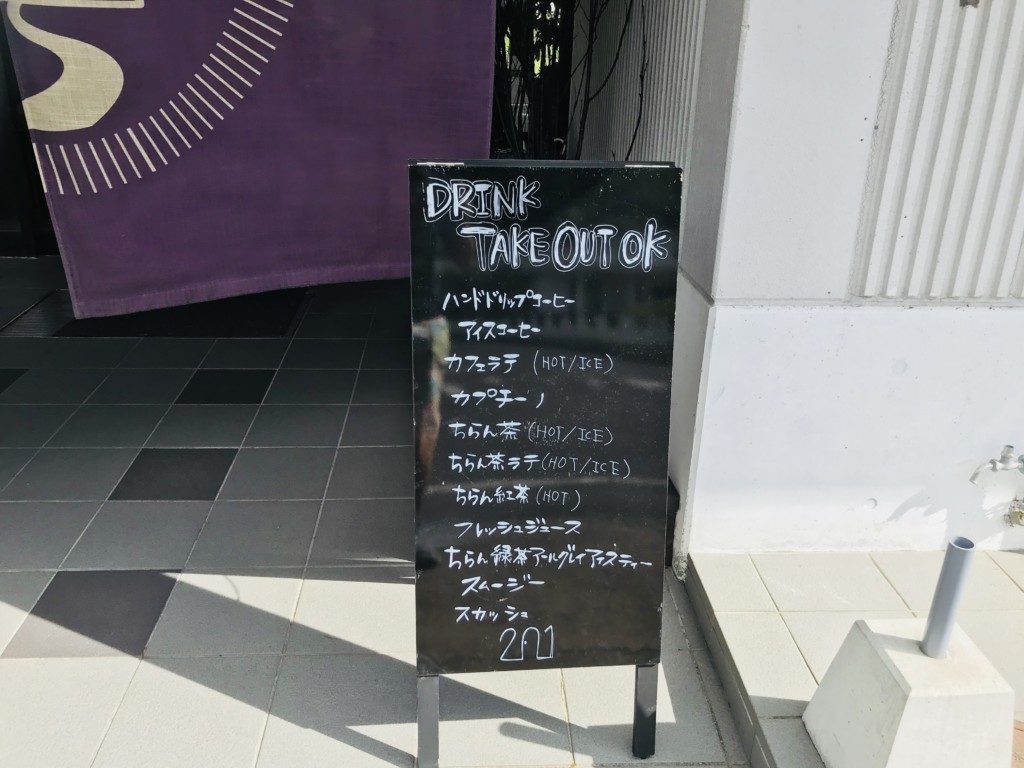 DRINK
TAKE OUT OK
ハンドドリップコーヒー
アイスコーヒー
カフェラテ (HOT/ICE)
カプチーノ
ちらん茶 (HOT/ICE)
ちらん茶ラテ (HOT/ICE)
ちらん紅茶 (HOT)
フレッシュジュース
ちらん緑茶アールグレイアイスティー
スムージー
スカッシュ